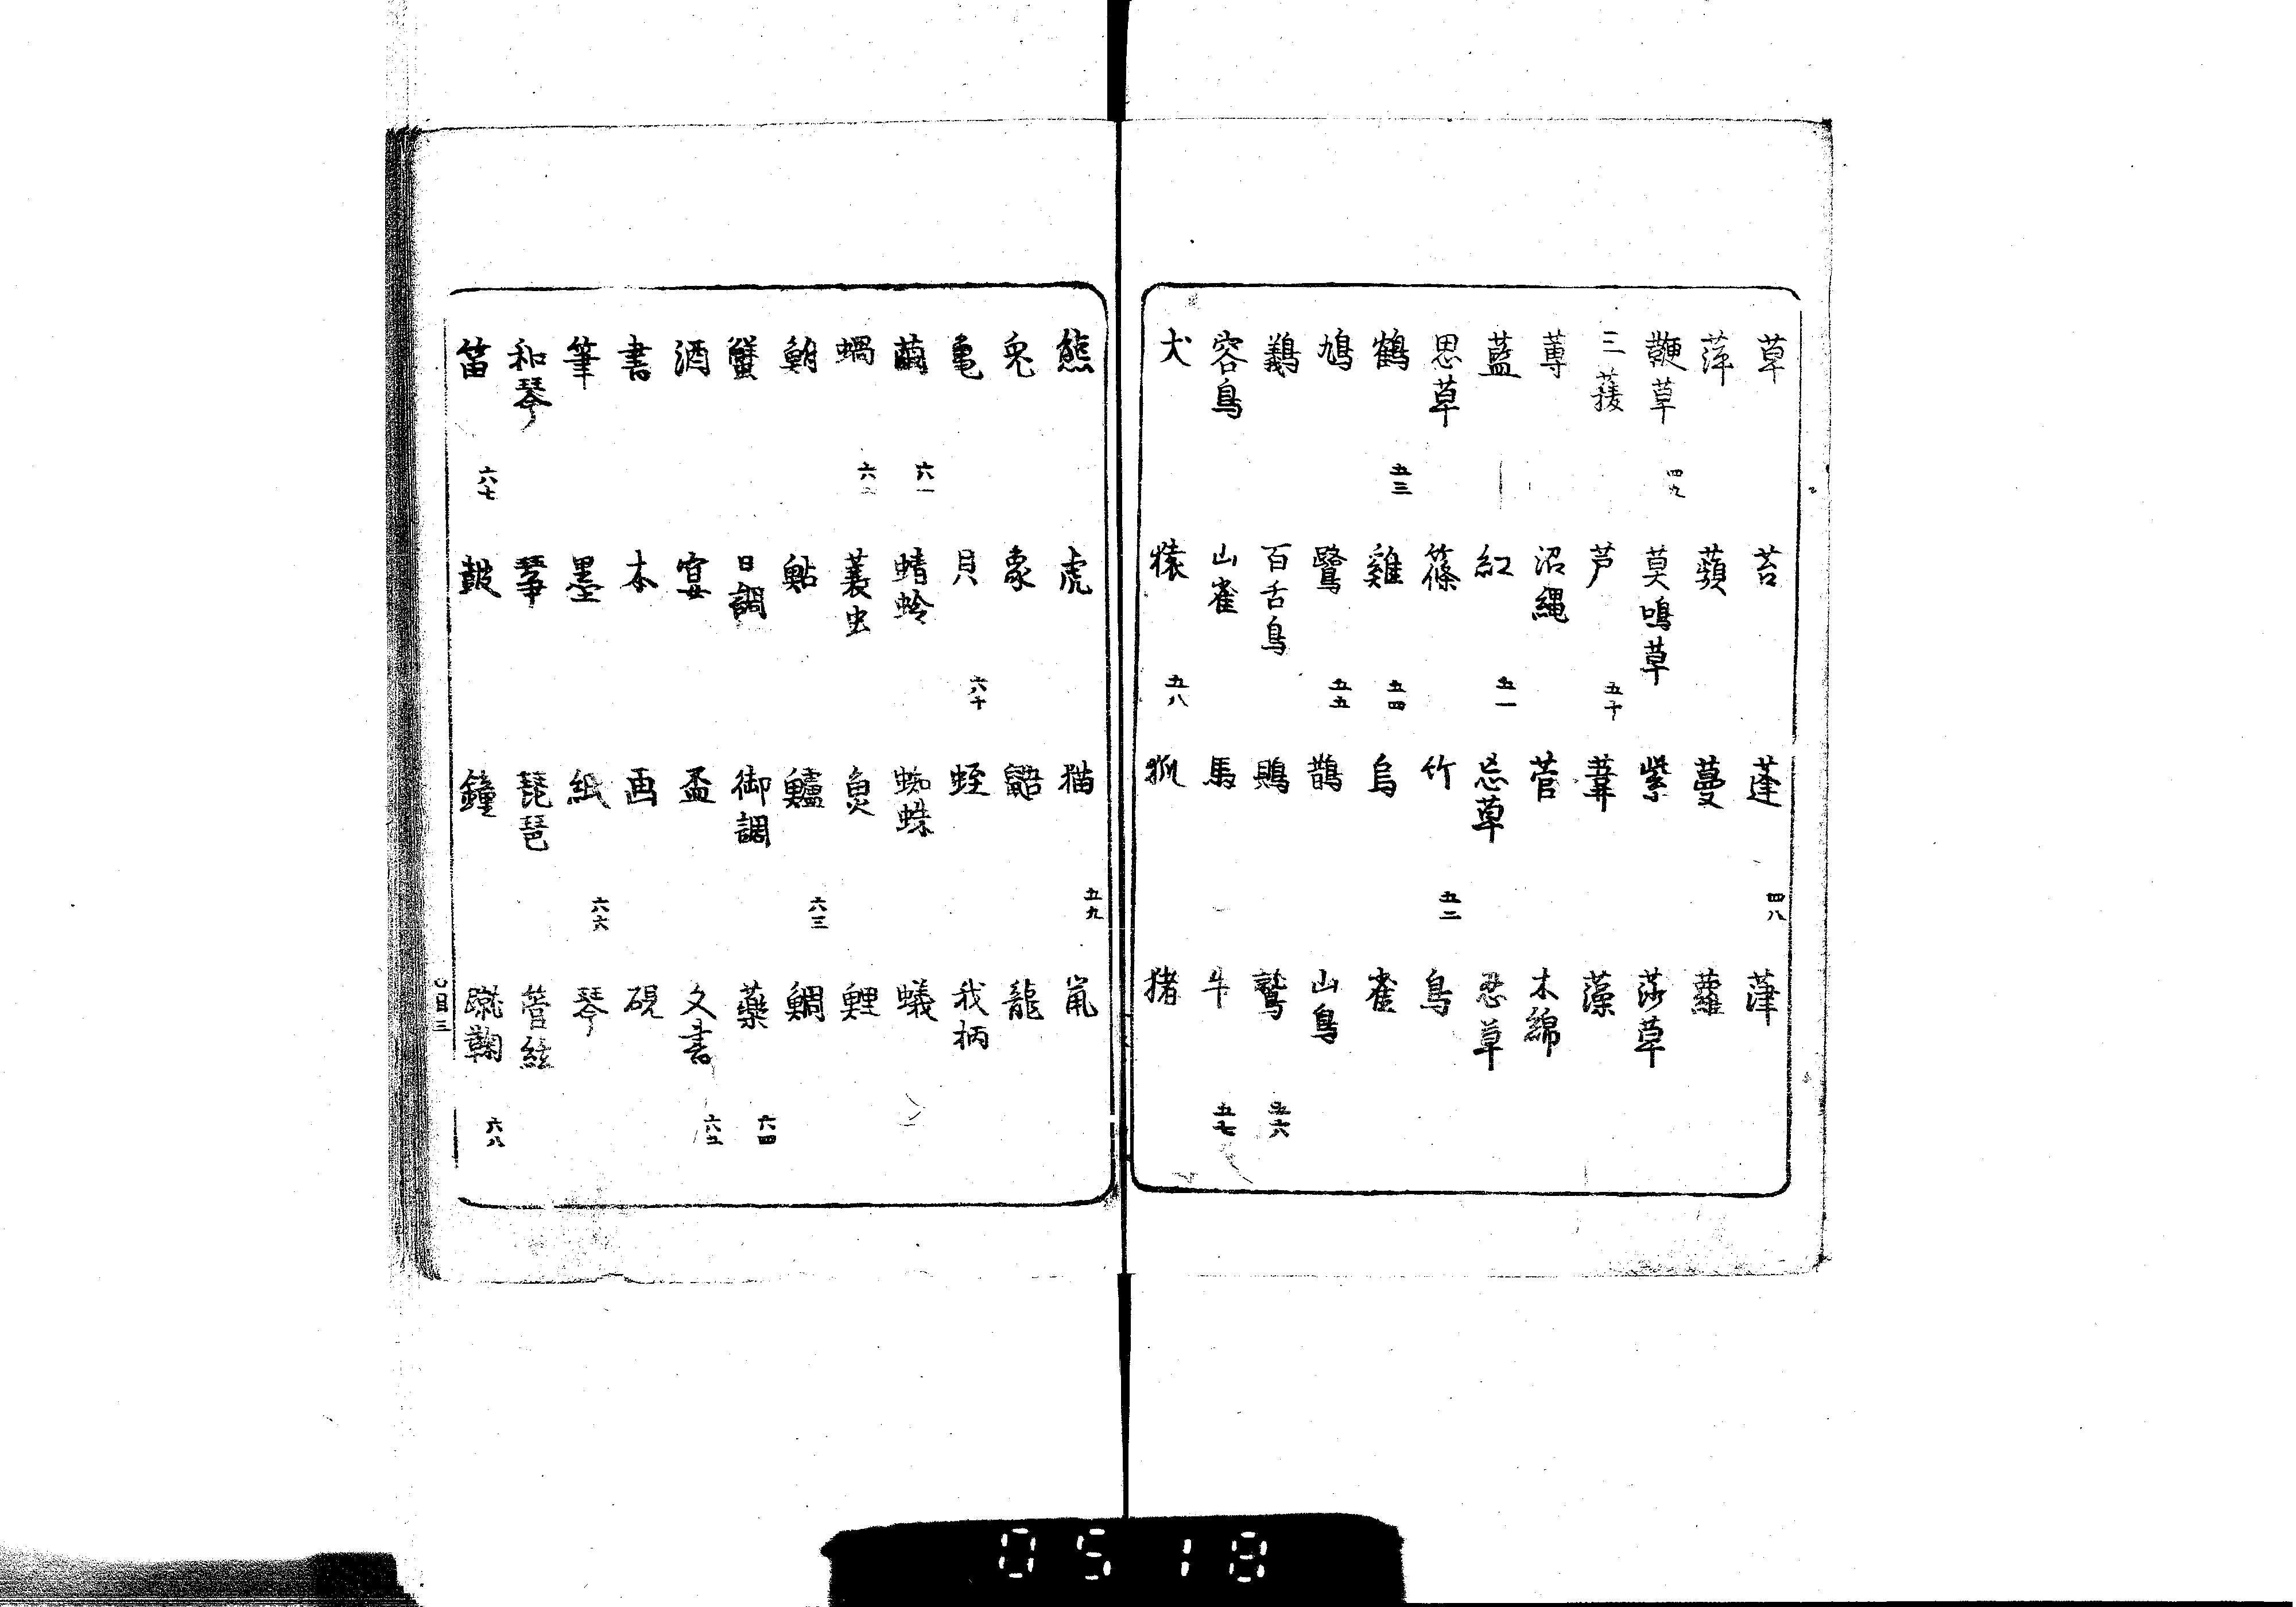 草 苔 蓬 四八 葏
萍 蘋 蔓 蘿
鞭草 四九 莫鳴草 紫 莎草
三 芦 五十 葦 藻
蓴 沼縄 菅 木綿
藍 紅 五一 忘草 忍草
思草 篠 竹 五二 鳥
鶴 五三 雞 五四 烏 雀
鳩 鷺 五五 鵲 山鳥
百舌鳥 鵙 鷲 五六
容鳥 山雀 馬 牛 五七
犬 猿 五八 狐 猪
熊 虎 猫 五九 鼠
兎 象 龍
亀 貝 六十 蛭 我柄
繭 六一 蜻蛉 蜘蛛 蟻
蝸 六二 蓑虫 魚 鯉
鮒 鮎 鱸 六三 鯛
蟹 日調 御調 薬 六四
酒 宴 盃 文書 六五
書 本 画 硯
筆 墨 紙 六六 琴
和琴 箏 琵琶 管絃
笛 六七 鼓 鐘 蹴鞠 六八
目三
0518